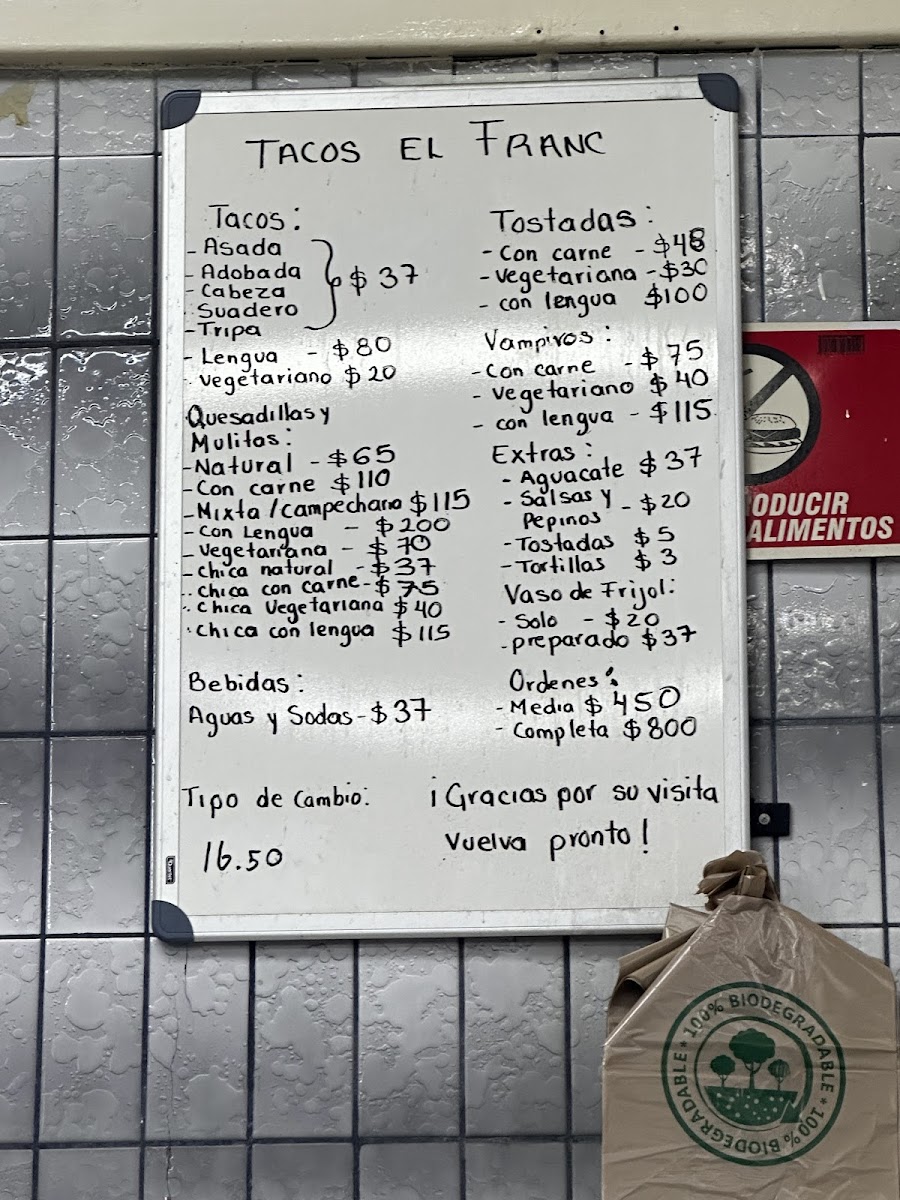 TACOS EL FRANC
Tacos:
- Asada
- Adobada
- Cabeza
- Suadero
- Tripa
$37
- Lengua - $80
- Vegetariano $20
Quesadillas y
Mulitas:
- Natural - $65
- Con carne $110
- Mixta/campechana $115
- Con Lengua - $200
- Vegetariana - $70
- Chica natural - $37
- Chica con carne - $75
- Chica Vegetariana $40
- Chica con lengua $115
Bebidas:
Aguas y Sodas - $37
Tipo de Cambio:
16.50
Tostadas:
- Con carne - $48
- Vegetariana - $30
- con lengua $100
Vampiros:
- Con carne - $75
- Vegetariano $40
- con lengua - $115
Extras:
- Aguacate $37
- Salsas y
Pepinos - $20
- Tostadas $5
- Tortillas $3
Vaso de Frijol:
- Solo - $20
- preparado $37
Ordenes:
- Media $450
- Completa $800
¡Gracias por su visita
Vuelva pronto!
ODUCIR
ALIMENTOS
100% BIODEGRADABLE * 100% BIODEGRADABLE *